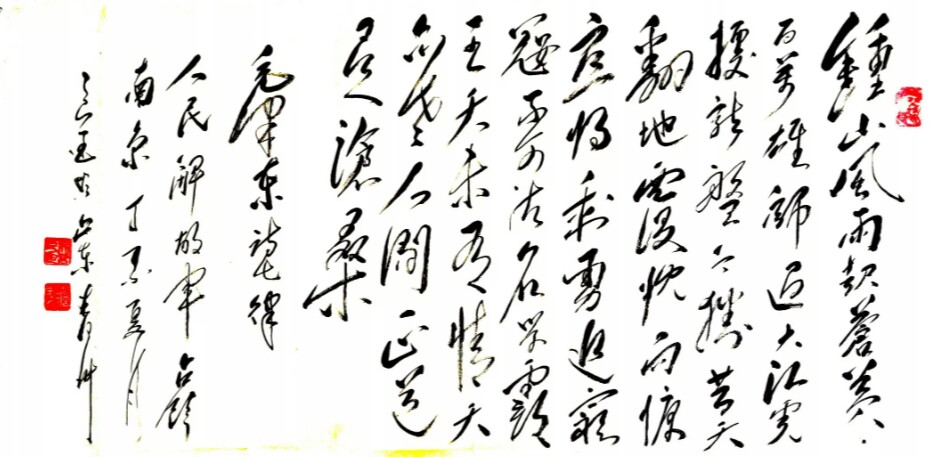 鍾山風雨起蒼黃
百萬雄師過大江虎
據龍盤今勝昔天
翻地覆慨而慷
宜將剩勇追窮
寇不可沽名學霸
王天若有情天
亦老人間正道
是滄桑
毛澤東詩七律
人民解放軍占領
南京丁亥夏月
書於山東青州